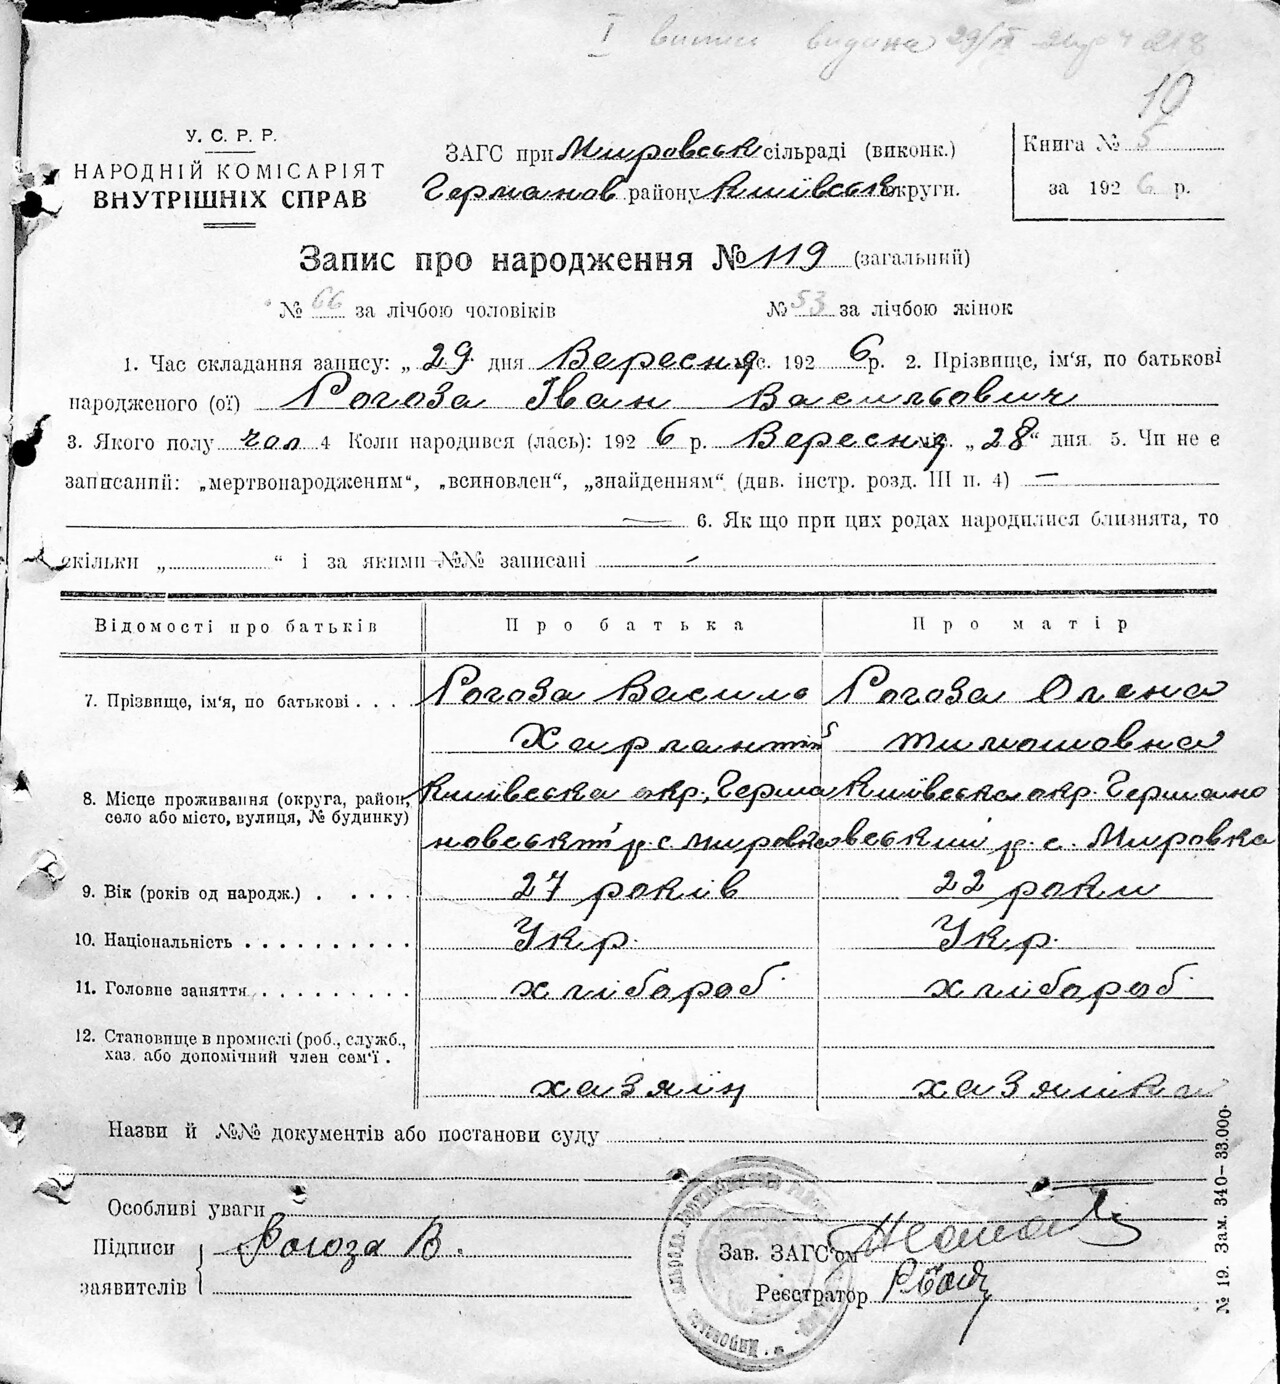 І випис видана 29/ІХ
10
У. С. Р. Р.
НАРОДНІЙ КОМІСАРІЯТ
ВНУТРІШНІХ СПРАВ
ЗАГС при Мировськ сільраді (виконк.)
Германов району Київськ округи.
Книга № 5
за 192 6 р.
Запис про народження № 119 (загальний)
№ 66 за лічбою чоловіків № 53 за лічбою жінок
1. Час складання запису: „ 29 дня Вересня міс. 192 6 р. 2. Прізвище, ім'я, по батькові
народженого (ої) Рогоза Іван Васильович
3. Якого полу чол 4 Коли народився (лась): 192 6 р. Вересня „28“ дня 5. Чи не є
записаний: „мертвонародженим“, „всиновлен“, „знайденням“ (див. інстр. розд. III п. 4) —
— 6. Як що при цих родах народилися близнята, то
скільки „ “ і за якими №№ записані
Відомості про батьків Про батька Про матір
7. Прізвище, ім'я, по батькові . . . . Рогоза Василь Рогоза Олена
Харлантій Тимошовна
8. Місце проживання (округа, район, Київська окр., Герма Київська окр. Германо
село або місто, вулиця, № будинку)
новськ р. с. Мировка вський р. с. Мировка
9. Вік (років од народж.) . . . . . 27 років 22 роки
10. Національність . . . . . . . . . . Укр. Укр.
11. Головне заняття . . . . . . . . . хлібороб хлібороб
12. Становище в промислі (роб., служб.,
хаз. або допомічний член сем'ї .
хазяїн хазяйка
Назви й №№ документів або постанови суду
Особливі уваги
Підписи Рогоза В.
заявителів
Зав. ЗАГС'ом
Реєстратор
№ 19. Зам. 340—33.000.